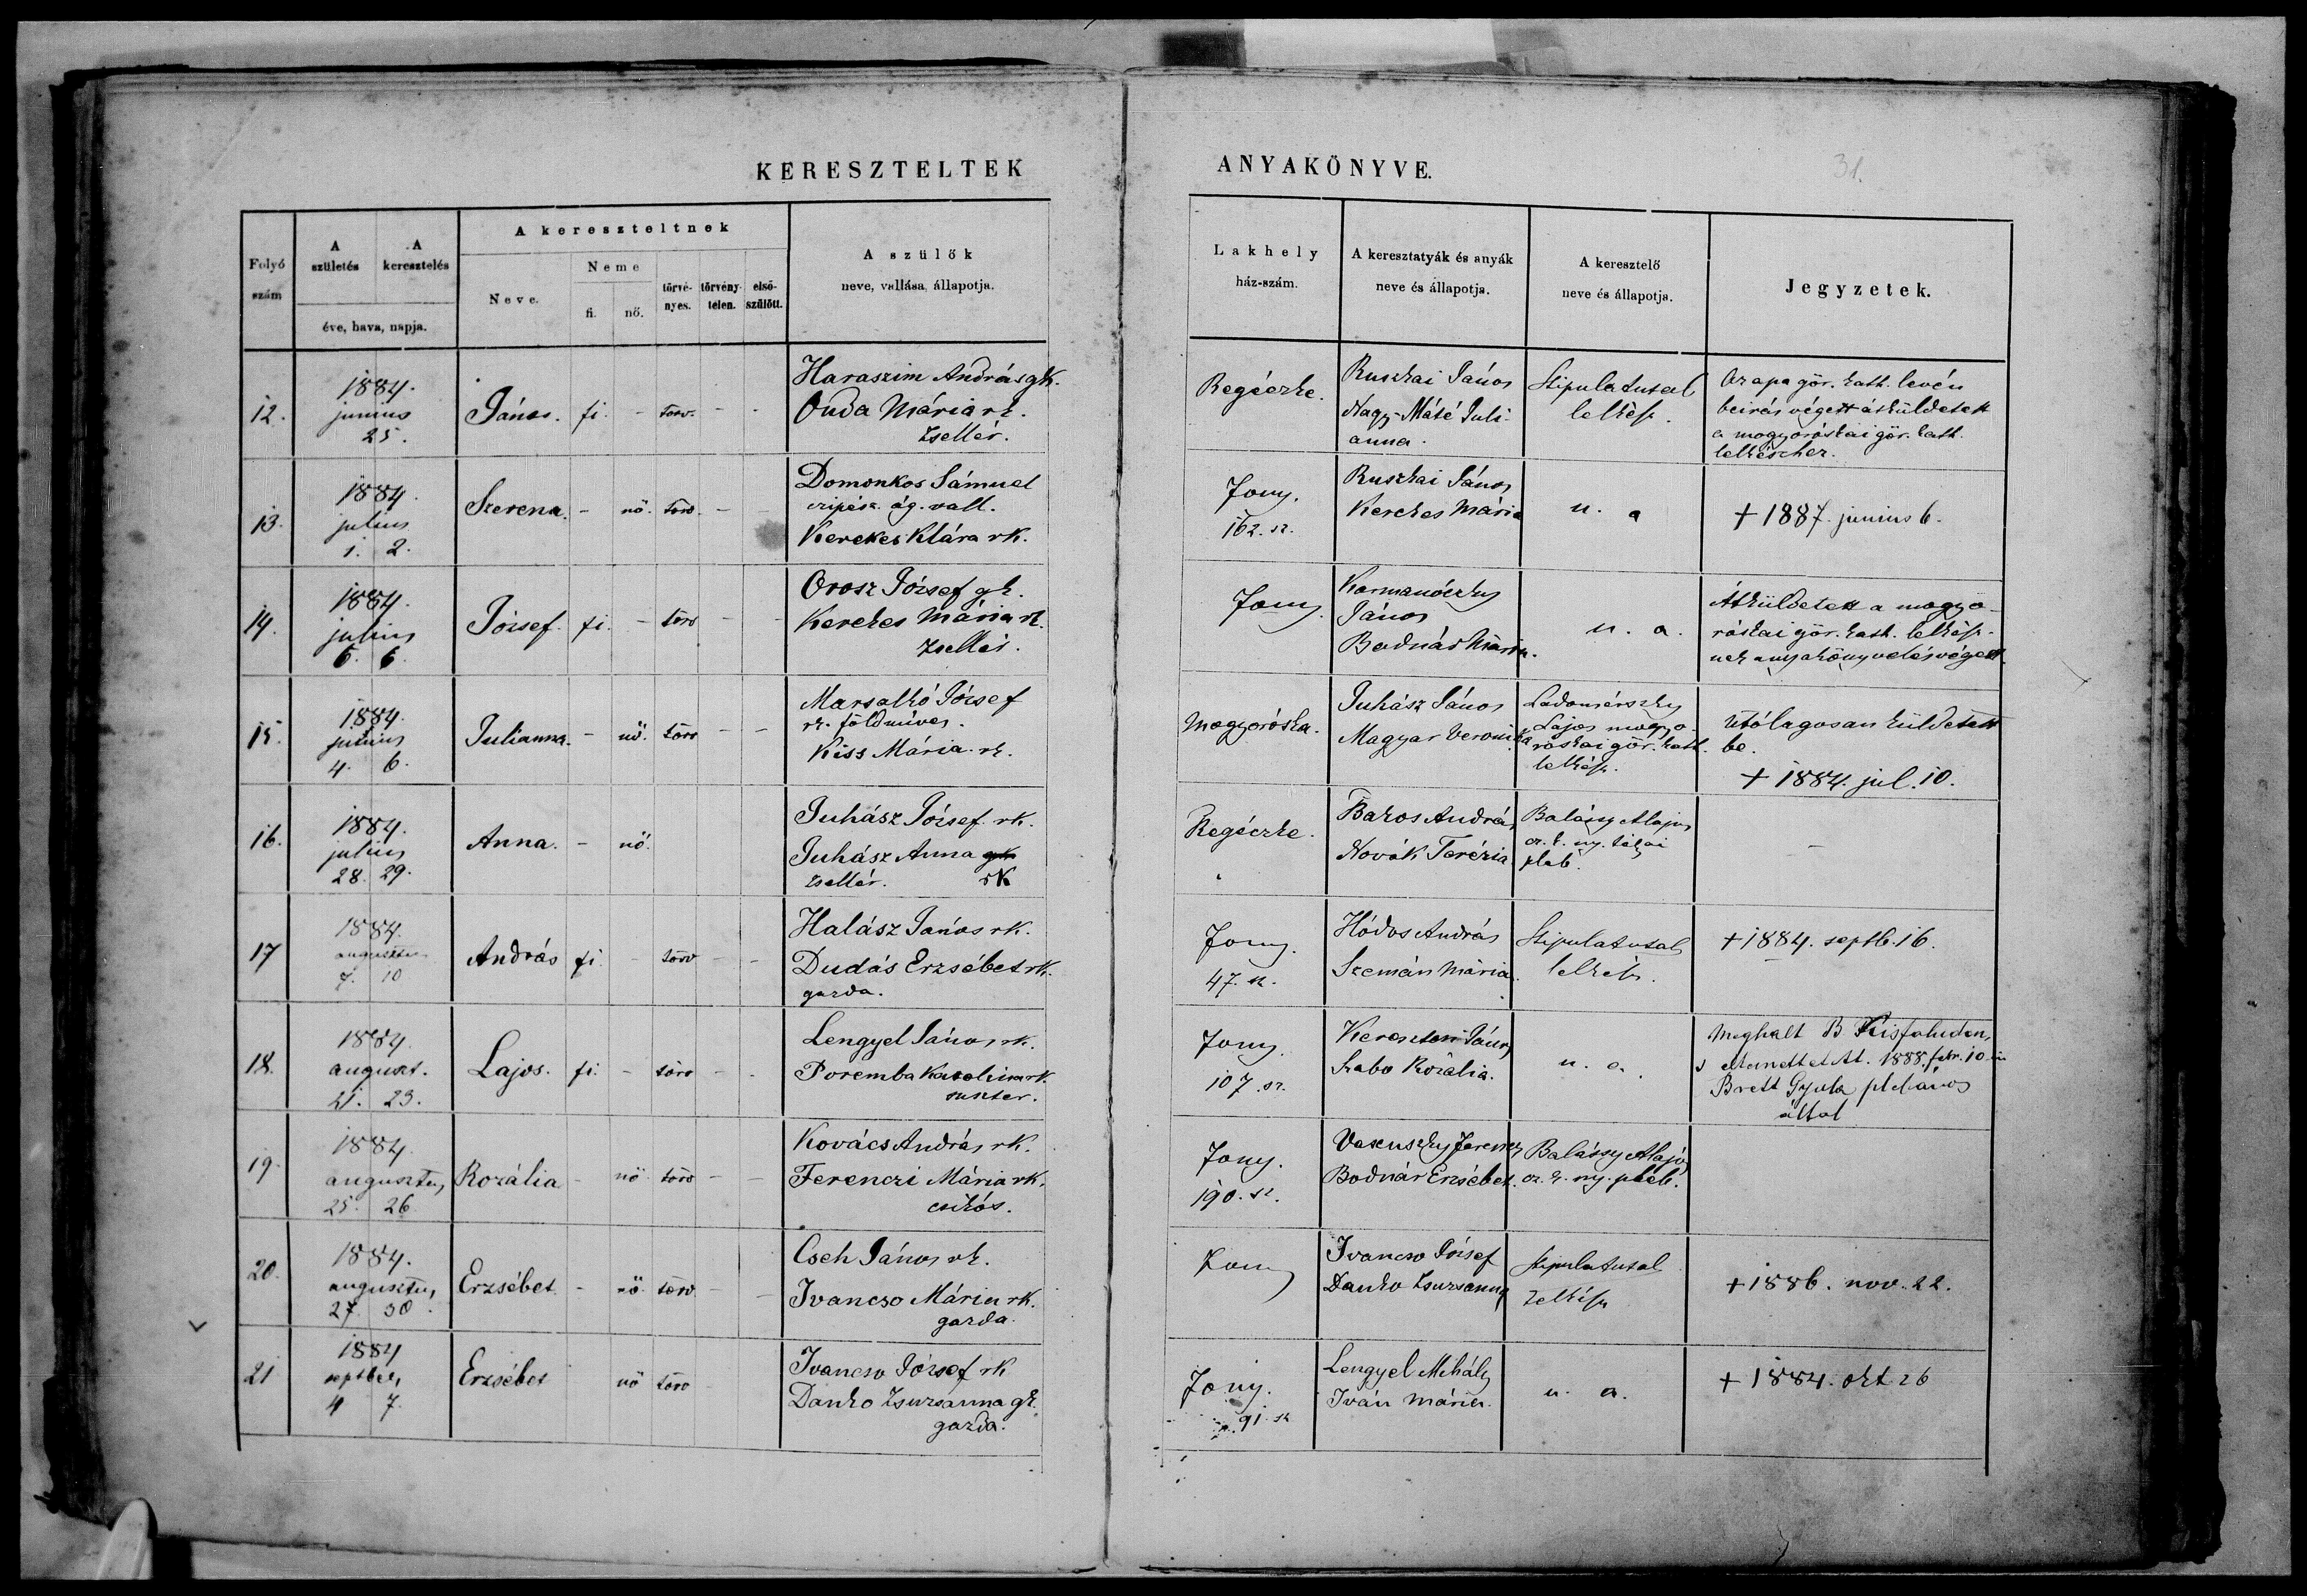 KERESZTELTEK
ANYAKÖNYVE.
31.
Folyó szám
A születés
A keresztelés
éve, hava, napja.
A kereszteltnek
Neve.
Neme
fi.
nő.
törvé-nyes.
törvény-telen.
első-szülött.
A szülők
neve, vallása, állapotja.
Lakhely
ház-szám.
A keresztatyák és anyák
neve és állapotja.
A keresztelő
neve és állapotja.
Jegyzetek.
12. 1884. junius 25. János. fi. - törv. - -
Haraszim András gk.
Onda Mária rk.
zsellér.
Regéczke.
Ruszkai János
Nagy-Máté Juli-
anna.
Stipulatusal
lelkész.
Az apa gör. kath. levén
beirás végett átküldetett
a mogyoróskai gör. kath.
lelkészhez.
13. 1884. julius 1. 2. Szerena. - nő. törv. - -
Domonkos Sámuel
czipész. ág. vall.
Kerekes Klára rk.
Fony.
162. sz.
Ruszkai János
Kerekes Mária
u. a
+ 1887. junius 6.
14. 1884. julius 6. 6. József. fi. - törv - -
Orosz József gk.
Kerekes Mária rk.
zsellér.
Fony
Kormanóczky
János
Bodnár Mária.
u. a.
Átküldetett a mogyo-
róskai gör. kath. lelkész-
nek anyakönyvelés végett.
15. 1884. julius 4. 6. Julianna. - nő. törv - -
Marsalkó József
rk. földműves.
Kiss Mária rk.
Mogyoróska.
Juhász János
Magyar Veronika
Ladomérszky
Lajos mogyo-
róskai gör. kath.
lelkész.
Utólagosan küldetett
be.
+ 1884. jul. 10.
16. 1884. julius 28. 29. Anna. - nő.
Juhász József rk.
Juhász Anna gk
zsellér. rk
Regéczke.
Bakos András
Novák Terézia
Balásy Alajos
pleb.
-
17 1884. augusztus 7. 10 András fi. - törv - -
Halász János rk.
Dudás Erzsébet rk.
gazda.
Fony.
47. sz.
Hódos András
Szemán Mária.
Stipulatusal
lelkész.
+ 1884. septb. 16.
18. 1884. auguszt. 21. 23. Lajos. fi. - törv - -
Lengyel János rk.
Poremba Karolina rk.
Fony.
107. sz.
János
Szabo Rozália.
u. a.
Meghalt B. Kisfaludon,
s eltemettetett. 1888. febr. 10-én
Brett Gyula plébános
által
19. 1884. augusztus, 25. 26 Rozália - nő törv - -
Kovács András rk.
Ferenczi Mária rk.
csikós.
Fony.
190. sz.
Ferencz
Bodnár Erzsébet.
Balássy Alajos
cz. k. ny. pleb.
20. 1884. augusztus, 27. 30. Erzsébet - nő törv - -
Cseh János rk.
Ivancso Mária rk.
gazda.
Fony
Ivancso József
Danko Zsuzsanna
Stipulatusal
lelkész
+ 1886. nov. 22.
21 1884 septber, 4 7. Erzsébet nő törv
Ivancso József rk
Danko Zsuzsanna gk.
gazda.
Fony.
91. sz
Lengyel Mihály
Iván Mária.
u. a.
+ 1884. okt. 26